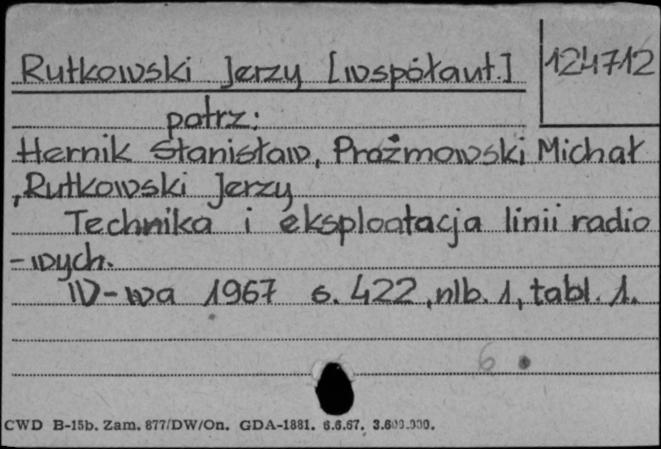 Rutkowski Jerzy [współaut.] 124712
patrz:
Hernik Stanisław, Prażmowski Michał
, Rutkowski Jerzy
Technika i eksploatacja linii radio
-wych.
W-wa 1967 s. 422, nlb. 1, tabl. 1.
6
CWD B-15b. Zam. 877/DW/On. GDA-1881. 6.6.67. 3.600.000.